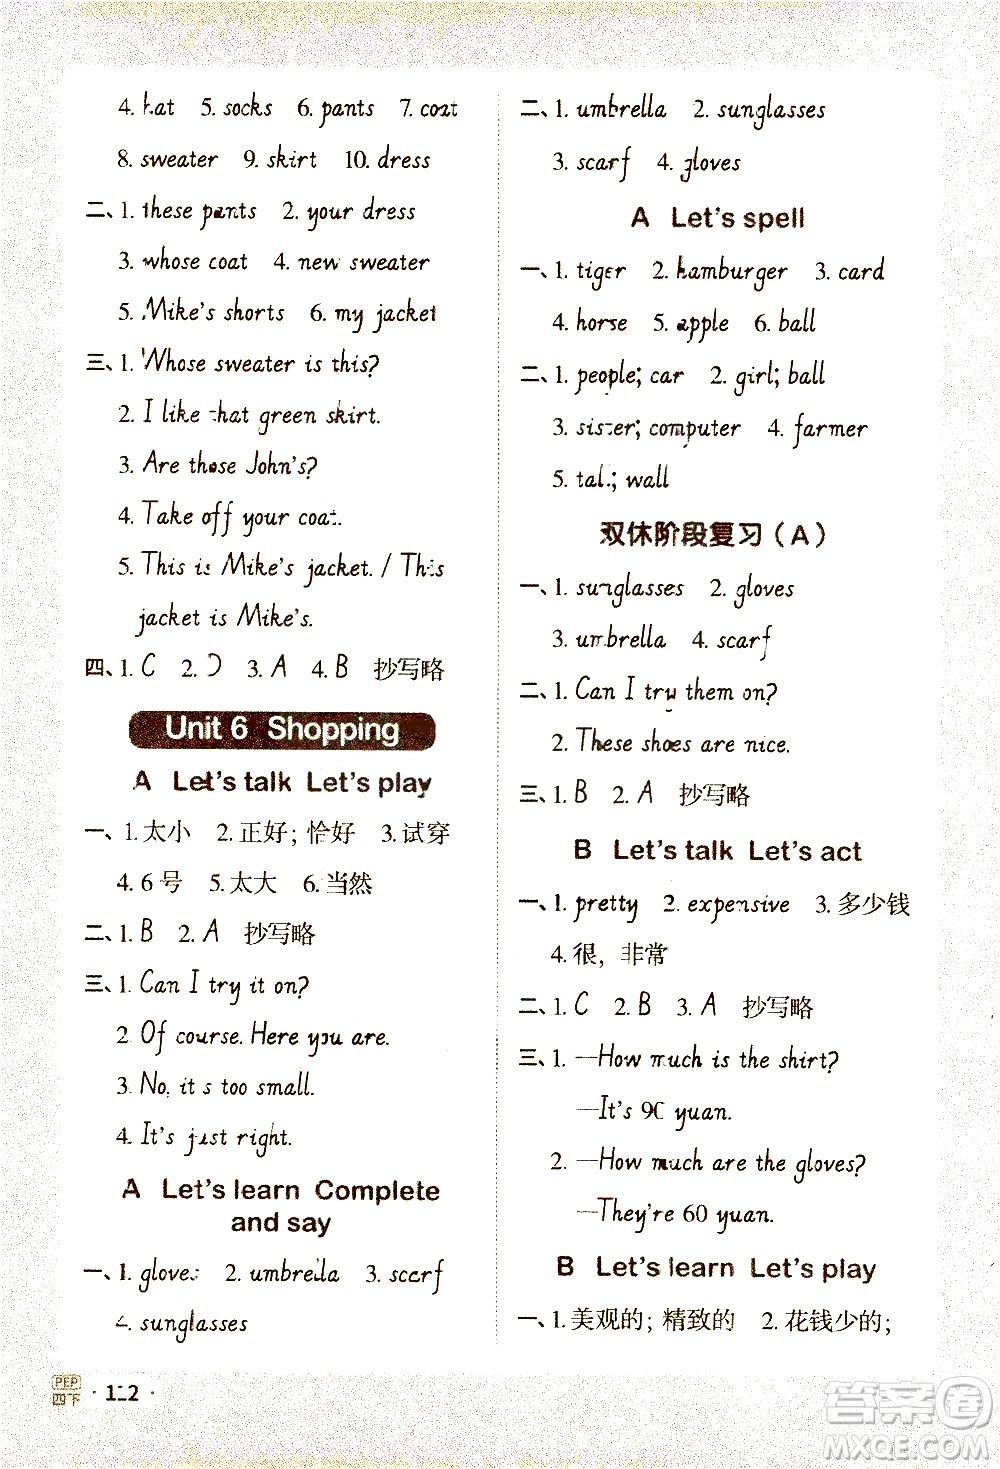 4. hat 5. socks 6. pants 7. coat
8. sweater 9. skirt 10. dress
二、1. these pants 2. your dress
3. whose coat 4. new sweater
5. Mike's shorts 6. my jacket
三、1. Whose sweater is this?
2. I like that green skirt.
3. Are those John's?
4. Take off your coat.
5. This is Mike's jacket. / This
jacket is Mike's.
四、1. C 2. D 3. A 4. B 抄写略
Unit 6 Shopping
A Let's talk Let's play
一、1. 太小 2. 正好；恰好 3. 试穿
4. 6号 5. 太大 6. 当然
二、1. B 2. A 抄写略
三、1. Can I try it on?
2. Of course. Here you are.
3. No, it's too small.
4. It's just right.
A Let's learn Complete
and say
一、1. gloves 2. umbrella 3. scarf
4. sunglasses
PEP
四下
· 112 ·
二、1. umbrella 2. sunglasses
3. scarf 4. gloves
A Let's spell
一、1. tiger 2. hamburger 3. card
4. horse 5. apple 6. ball
二、1. people; car 2. girl; ball
3. sister; computer 4. farmer
5. tall; wall
双休阶段复习（A）
一、1. sunglasses 2. gloves
3. umbrella 4. scarf
二、1. Can I try them on?
2. These shoes are nice.
三、1. B 2. A 抄写略
B Let's talk Let's act
一、1. pretty 2. expensive 3. 多少钱
4. 很，非常
二、1. C 2. B 3. A 抄写略
三、1. —How much is the shirt?
—It's 90 yuan.
2. —How much are the gloves?
—They're 60 yuan.
B Let's learn Let's play
一、1. 美观的；精致的 2. 花钱少的；
答案圈
MXQE.COM